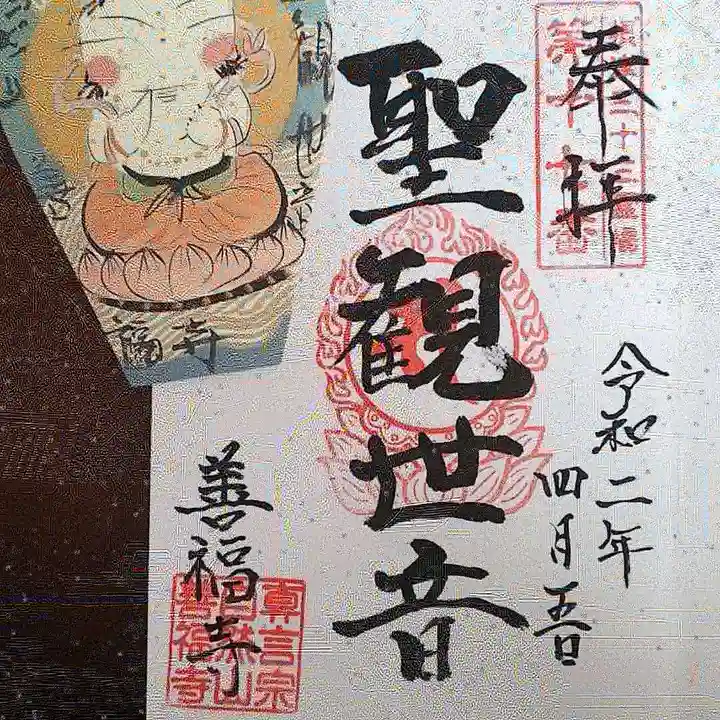 奉拝
令和二年
四月五日
聖観世音
善福寺
真言宗
善福寺
観世音